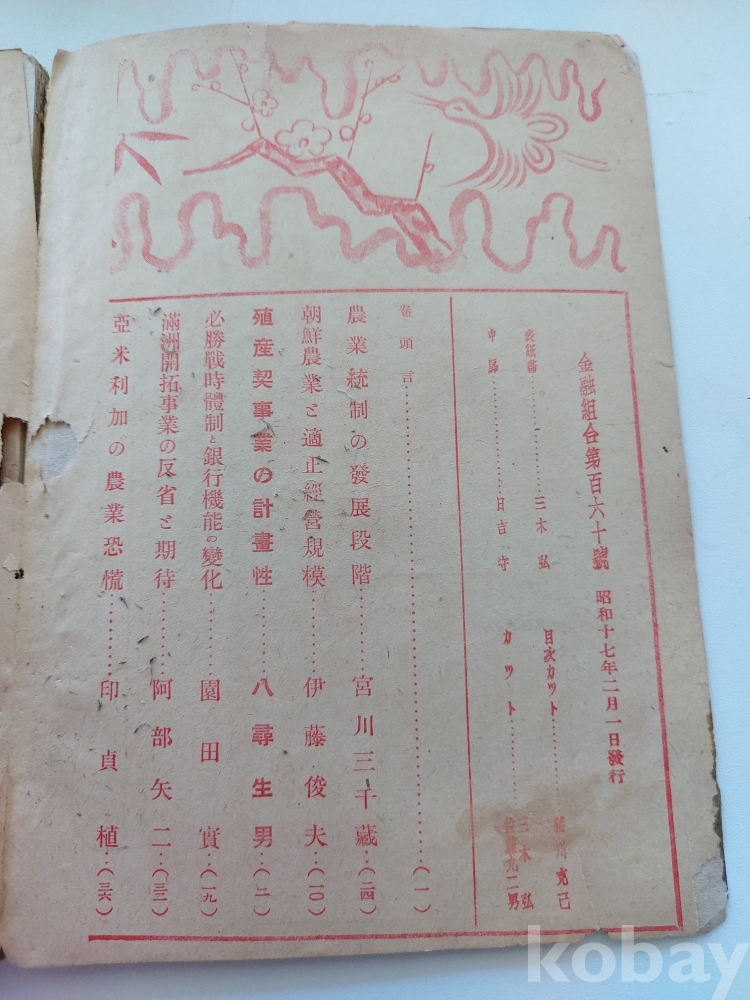 金融組合第百六十號 昭和十七年二月一日發行
表紙畵……………三木弘
目次カット……………川克己
中扉……………日吉守
カット……………三木弘
佐藤九二男
卷頭言……………(一)
農業統制の發展段階……宮川三千藏…(二四)
朝鮮農業と適正經營規模……伊藤俊夫…(一〇)
殖產契事業の計畫性……八尋生男…(二)
必勝戰時體制と銀行機能の變化……園田實…(一九)
滿洲開拓事業の反省と期待……阿部矢二…(三三)
亞米利加の農業恐慌……印貞植…(三六)
kobay